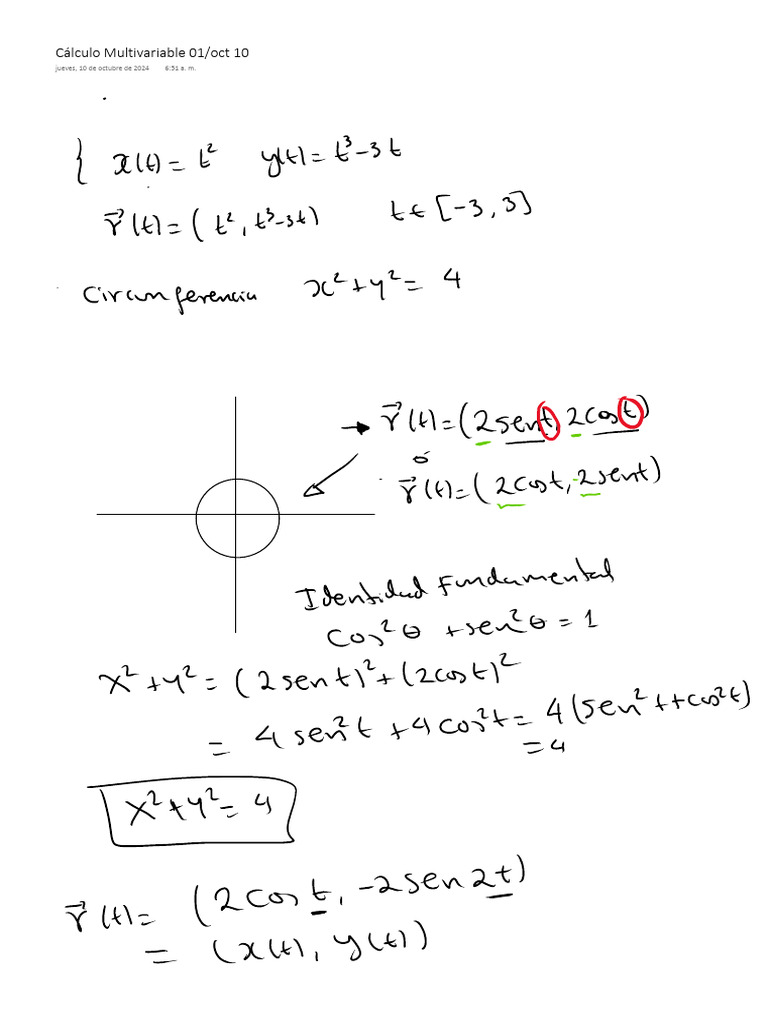 Cálculo Multivariable 01/oct 10
jueves, 10 de octubre de 2024 6:51 a. m.
{ x(t) = t² y(t) = t³-3t
r⃗(t) = (t², t³-3t) t ∈ [-3, 3]
Circunferencia x²+y² = 4
→ r⃗(t) = (2sent, 2cost)
ó
r⃗(t) = (2cost, -2sent)
Identidad Fundamental
Cos²θ + sen²θ = 1
x²+y² = (2sent)²+(2cost)²
= 4sen²t + 4cos²t = 4(sen²t+cos²t)
= 4
x²+y² = 4
r⃗(t) = (2cost, -2sen2t)
= (x(t), y(t))